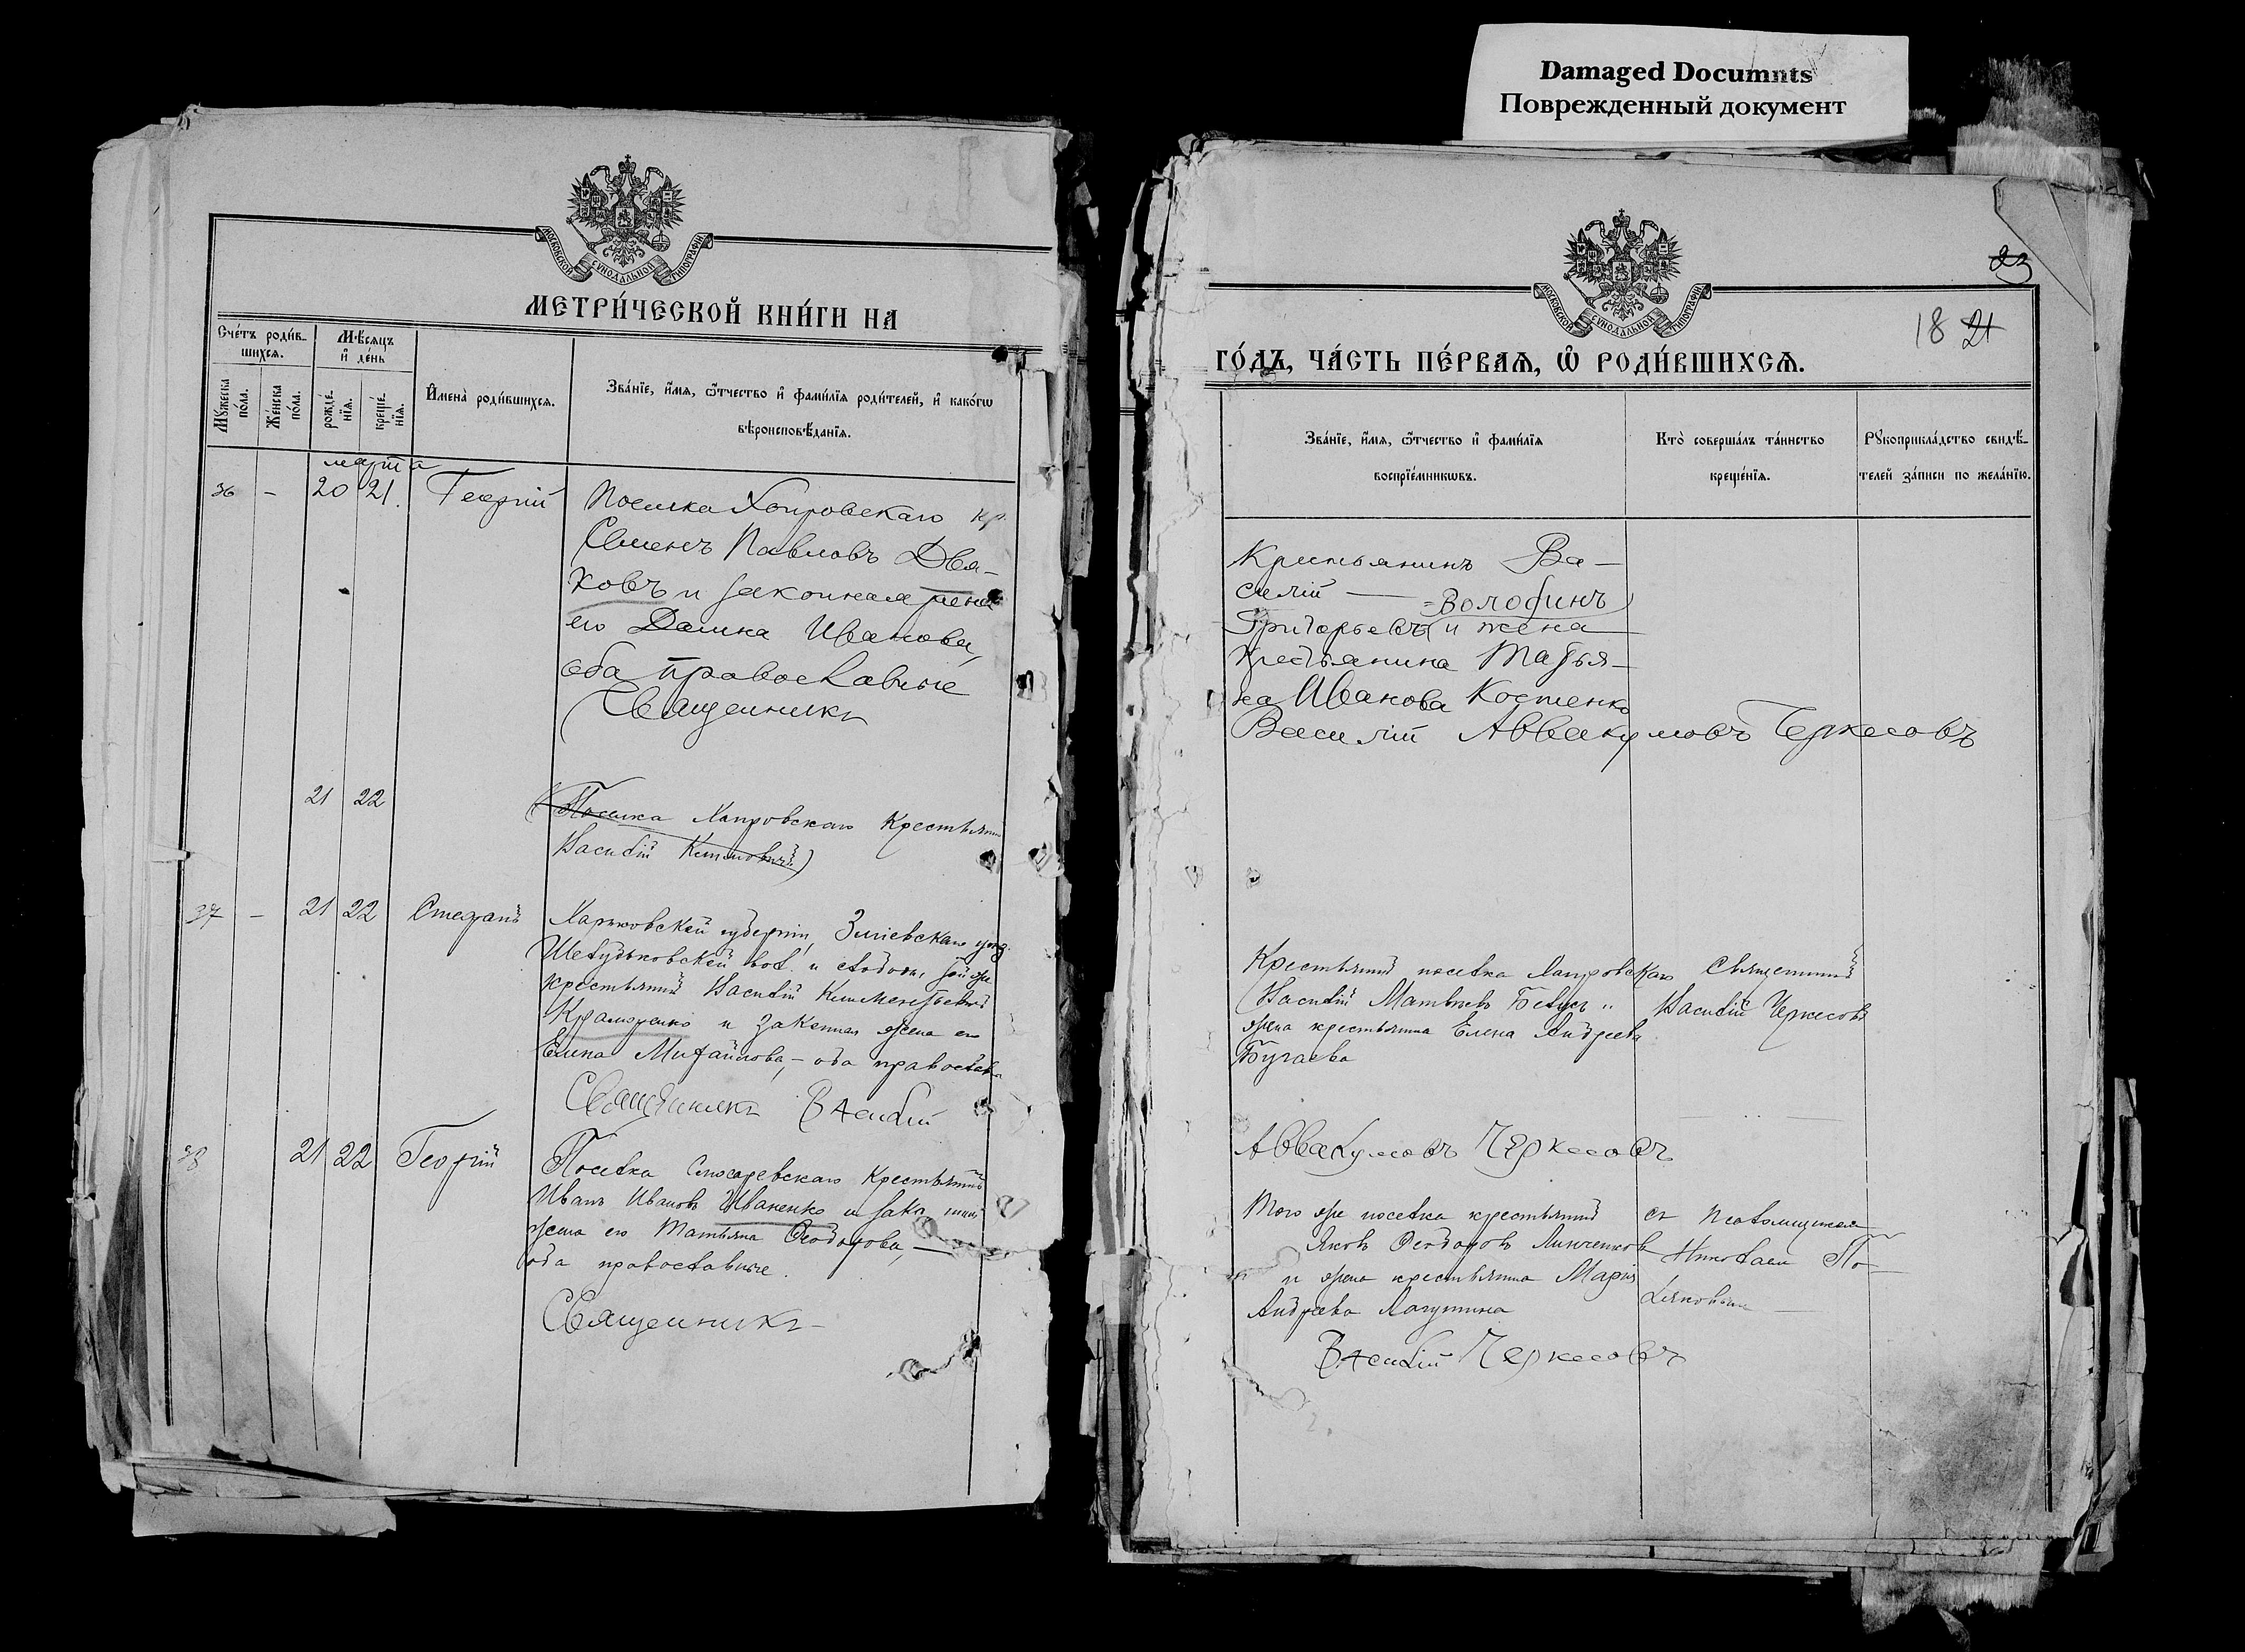 Damaged Documnts
Поврежденный документ
МОСКОВСКОЙ СУНОДАЛЬНОЙ ТИПОГРАФІИ
МЕТРИ́ЧЕСКОЙ КНИ́ГИ НА
Сче́тъ роди́в-
шихся.
Мѣ́сяцъ
и҆ де́нь
Мꙋ́жеска
по́ла.
Же́нска
по́ла.
рожде́-
нїѧ.
креще́-
нїѧ.
И҆мена̀ роди́вшихсѧ.
Зва́нїе, и҆́мѧ, ѻ҆́тчество и҆ фами́лїѧ роди́телей, и҆ како́гѡ
вѣроисповѣ́данїѧ.
марта
36 - 20 21. Георгій
Поселка Хопровскаго кр.
Семенъ Павловъ Двя-
ковъ и законная жена
его Домна Иванова,
оба православные
Священникъ
21 22
(Поселка Хапровскаго Крестьянин
Василій)
37 - 21 22 Стефанъ
Харьковской губерніи, Зміевскаго уѣзд.
вол. и слободы, той же
крестьянинъ Василій Климентьевъ
и законная жена его
Елена Михайлова, - оба православн
Священникъ Василій
38 21 22 Георгій
Поселка Слюсаревскаго Крестьянинъ
Иванъ Ивановъ Иваненко и закон
жена его Татьяна Ѳеодорова, -
оба православные.
Священникъ
23
МОСКОВСКОЙ СУНОДАЛЬНОЙ ТИПОГРАФІИ
18 21
ГО́ДЪ, ЧА́СТЬ ПЕ́РВАѦ, Ѡ҆ РОДИ́ВШИХСѦ.
Зва́нїе, и҆́мѧ, ѻ҆́тчество и҆ фами́лїѧ
воспрїе́мникѡвъ.
Кто̀ соверша́лъ та́инство
креще́нїѧ.
Рꙋкоприкла́дство свидѣ́-
телей за́писи по жела́нїю.
Крестьянинъ Ва-
силій - Волофинъ
Григорьевъ и жена
крестьянина Татья-
на Иванова Костенко
Василій Аввакумовъ Черкесовъ
Крестьянинъ поселка Хапровскаго
Василій Матвѣевъ Белусъ и
жена крестьянина Елена Андреева
Бугаева
Священникъ
Василій Черкесовъ
Аввакумовъ Черкесовъ
Того же поселка крестьянинъ
Яковъ Ѳеодоровъ Линченковъ
и жена крестьянина Марія
Андреева Лагутина
съ псаломщикомъ
Николаем По-
ляковым
Василій Черкесовъ